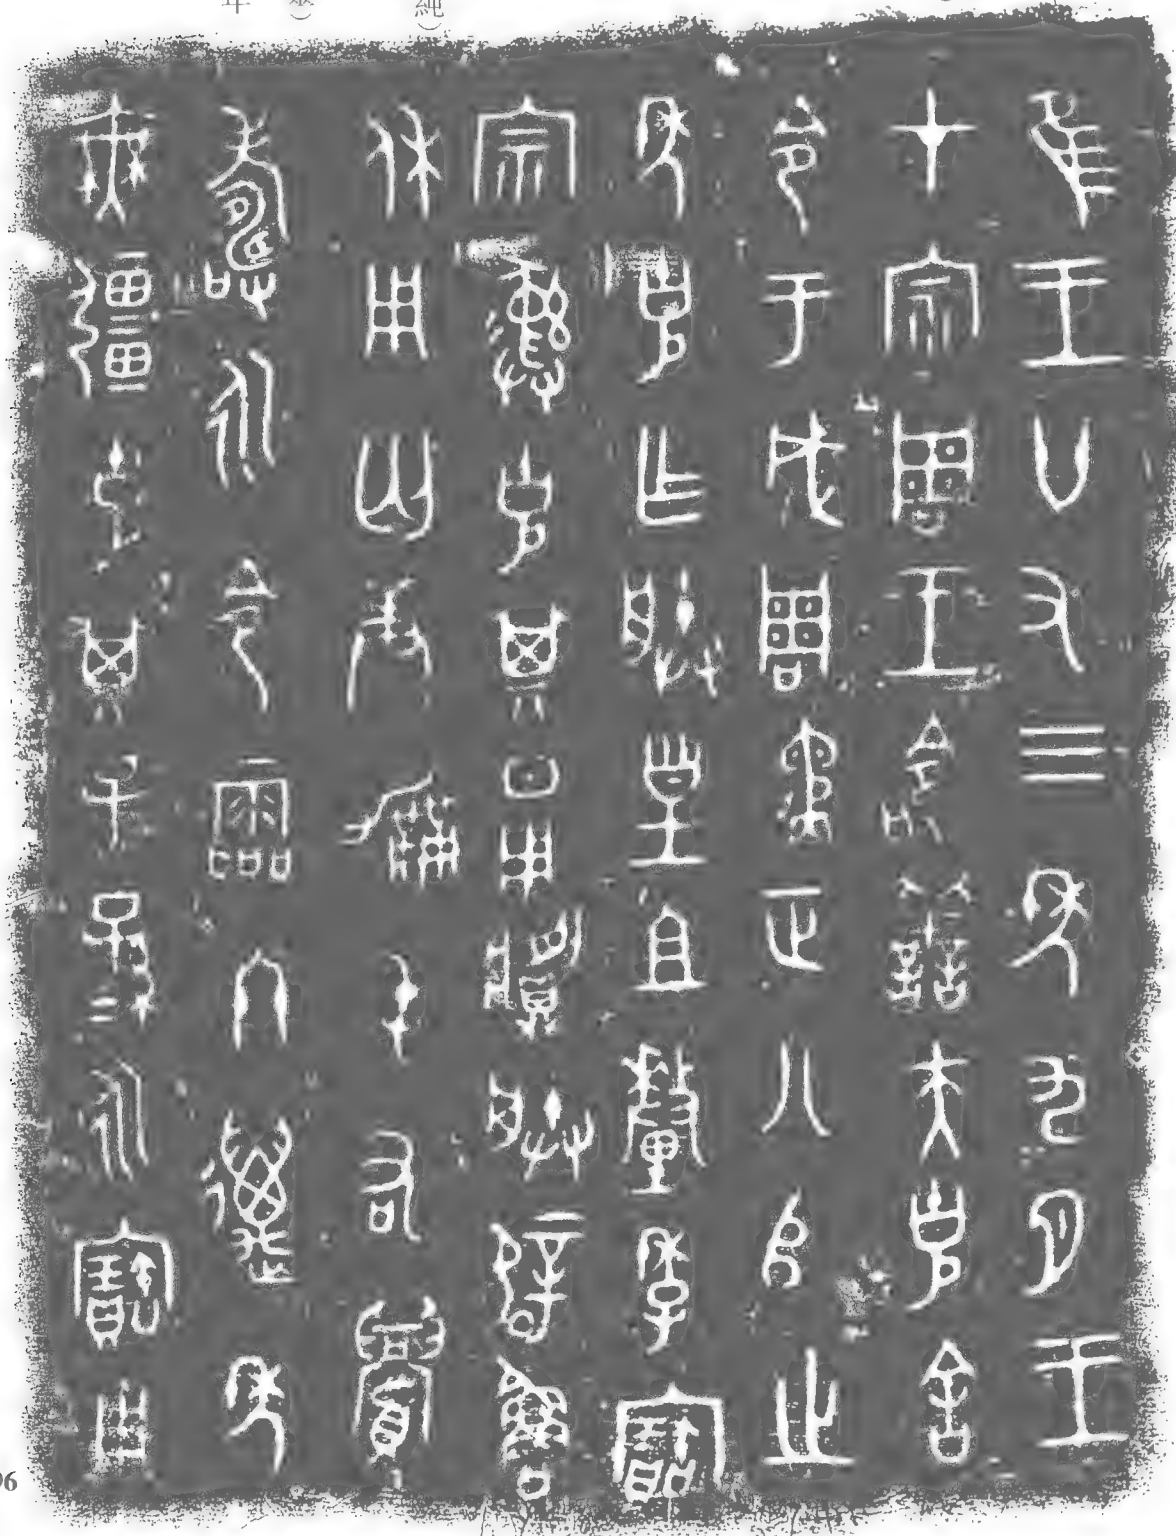 隹王廿又三年九月王
才宗周王命善夫克舍
令于成周遹正八𠂤之
年克乍朕皇且釐季寶
宗彝克其日用䵼朕辟魯
休用匄康勵屯右眉
壽永令霝冬邁年
無疆克其子子孫孫永寶用